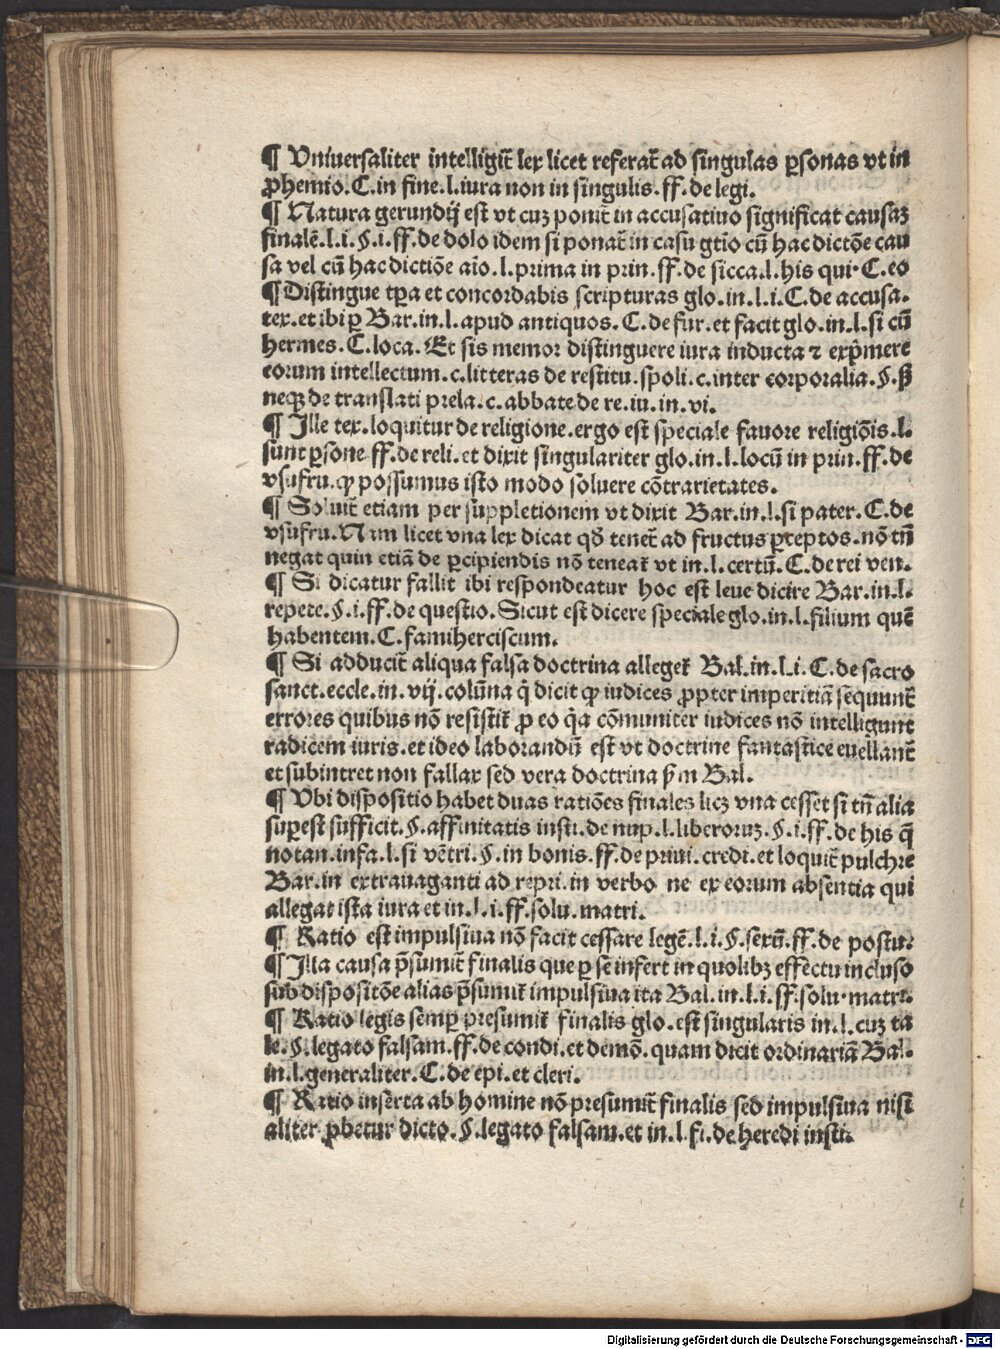 ¶ Uniuersaliter intelligit᷑ lex licet referat᷑ ad singulas ꝑsonas vt in
ꝓhemio. C. in fine. l. iura non in singulis. ff. de legi.
¶ Natura gerundij est vt cuꝫ ponit᷑ in accusatiuo significat causaꝫ
finalē. l. i. §. i. ff. de dolo idem si ponat᷑ in casu gtīo cū hac dictōe cau
sa vel cū hac dictiōe aīo. l. prima in prin. ff. de sicca. l. his qui. C. eo
¶ Distingue tꝑa et concordabis scripturas glo. in. l. i. C. de accusa.
tex. et ibi ꝑ Bar. in. l. apud antiquos. C. de fur. et facit glo. in. l. si cū
hermes. C. loca. Et sis memor distinguere iura inducta ⁊ exp̄mere
eorum intellectum. c. litteras de restitu. spoli. c. inter corporalia. §. ß
neqꝫ de translati prela. c. abbate de re. iu. in. vi.
¶ Ille tex. loquitur de religione. ergo est speciale fauore religiōis. l.
sunt ꝑsone. ff. de reli. et dixit singulariter glo. in. l. locū in prin. ff. de
vsufru. ꝙ possumus isto modo soluere cōtrarietates.
¶ Soluit᷑ etiam per suppletionem vt dixit Bar. in. l. si pater. C. de
vsufru. Nam licet vna lex dicat qđ tenet᷑ ad fructus ꝑceptos. nō tn̄
negat quin etiā de ꝑcipiendis nō teneat᷑ vt in. l. certū. C. de rei ven.
¶ Si dicatur fallit ibi respondeatur hoc est leue dicire Bar. in. l.
repete. §. i. ff. de questio. Sicut est dicere speciale glo. in. l. filium quē
habentem. C. famiherciscum.
¶ Si adducit᷑ aliqua falsa doctrina alleget᷑ Bal. in. l. i. C. de sacro
sanct. eccle. in. vij. colūna q̇ dicit ꝙ iudices ꝓpter imperitiā seq̄uunt᷑
errores quibus nō resistit᷑ ꝓ eo q̇a cōmuniter iudices nō intelligunt
radicem iuris. et ideo laborandū est vt doctrine fantastice euellant᷑
et subintret non fallax sed vera doctrina ẜm Bal.
¶ Ubi dispositio habet duas ratiōes finales licꝫ vna cesset si tn̄ alia
suꝑest sufficit. §. affinitatis insti. de nup. l. liberoruꝫ. §. i. ff. de his q̄
notan. infa. l. si vētri. §. in bonis. ff. de priui. credi. et loquit᷑ pulchre
Bar. in extrauaganti ad repri. in verbo ne ex eorum absentia qui
allegat ista iura et in. l. i. ff. solu. matri.
¶ Ratio est impulsiua nō facit cessare legē. l. i. §. sexū. ff. de postu.
¶ Illa causa p̄sumit᷑ finalis que ꝑ se infert in quolibꝫ effectu incluso
sub dispositōe alias p̄sumit᷑ impulsiua ita Bal. in. l. i. ff. solu. matri.
¶ Ratio legis semꝑ presumit᷑ finalis glo. est singularis in. l. cuꝫ ta
le. §. legato falsam. ff. de condi. et demō. quam dicit ordinariā Bal.
in. l. generaliter. C. de epi. et cleri.
¶ Ratio inserta ab homine nō presumit᷑ finalis sed impulsiua nisi
aliter ꝓbetur dicto. §. legato falsam. et in. l. fi. de heredi insti.
Digitalisierung gefördert durch die Deutsche Forschungsgemeinschaft - DFG